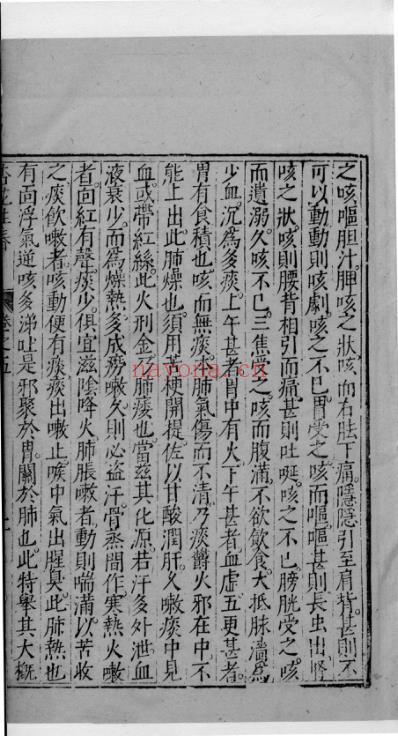 之咳嘔胆汁脾咳之狀咳而右胠下痛隱隱引至肩背甚則不
可以動動則咳劇咳之不已胃受之咳而嘔嘔甚則長虫出腎
咳之狀咳則腰背相引而痛甚則吐涎咳之不已膀胱受之咳
而遺溺久咳不已三焦受之咳而腹滿不欲飲食大抵脉濇爲
少血沉爲多痰上午甚者胃中有火下午甚者血虛五更甚者
胃有食積也咳而無痰者肺氣傷而不清乃痰欝火邪在中不
能上出此肺燥也須用苦梗開提佐以甘酸潤肝久嗽痰中見
血或帶紅絲此火刑金而肺痿也當滋其化源若汗多外泄血
液衰少而爲燥熱多成癆嗽久則必盜汗骨蒸間作寒熱火嗽
者面紅有聲痰少俱宜滋陰降火肺脹嗽者動則喘滿以苦收
之痰飲嗽者咳動便有痰痰出嗽止嗽中氣出腥臭此肺熱也
有面浮氣逆咳多涕吐是邪聚於胃關於肺也此特舉其大槪
卷之五
nayona.cn